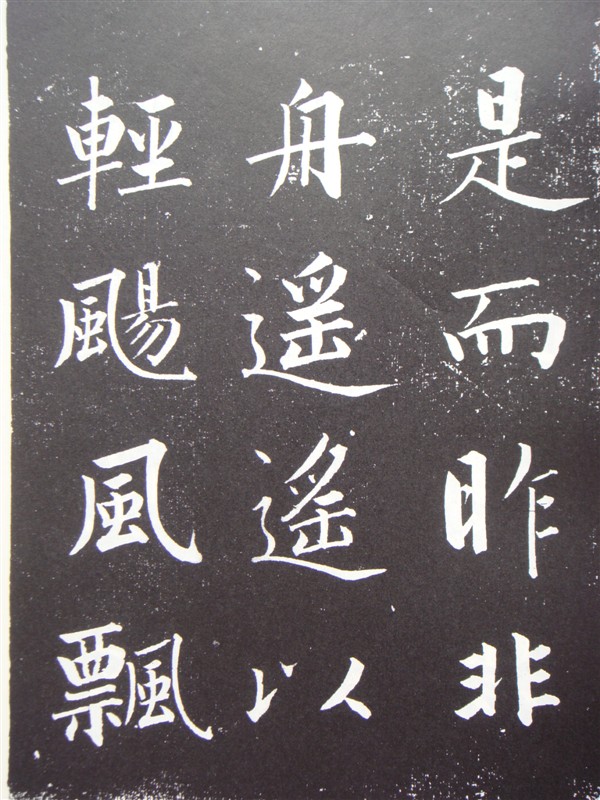 是而昨非
舟遥遥以
輕颺風飄